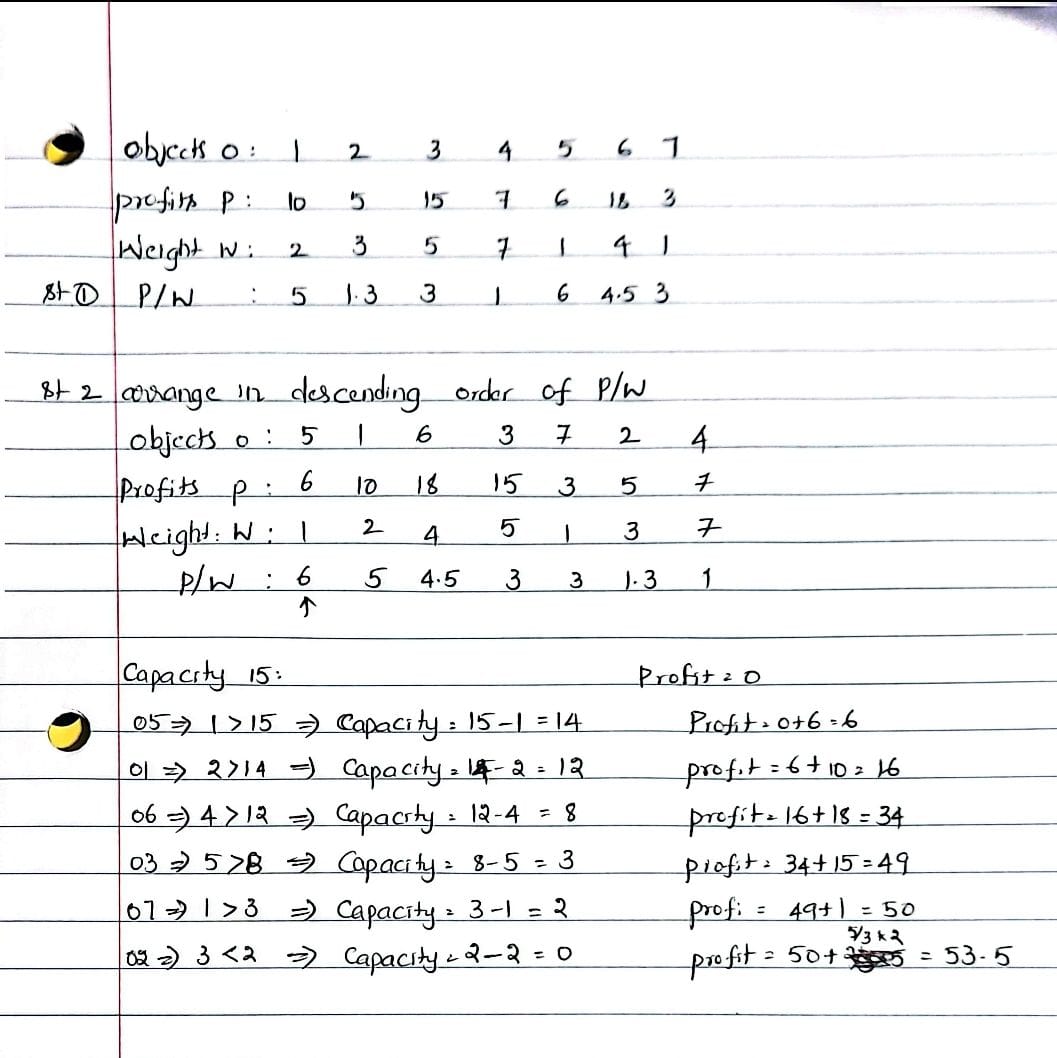 objects o : 1 2 3 4 5 6 7
profits P : 10 5 15 7 6 18 3
Weight W : 2 3 5 7 1 4 1
St ① P/W : 5 1.3 3 1 6 4.5 3
St 2 arrange in descending order of P/W
objects o : 5 1 6 3 7 2 4
Profits p : 6 10 18 15 3 5 7
Weight : W : 1 2 4 5 1 3 7
P/W : 6 5 4.5 3 3 1.3 1
↑
Capacity 15: Profit = 0
05 ⇒ 1 > 15 ⇒ Capacity = 15-1 = 14 Profit = 0+6 = 6
01 ⇒ 2 > 14 ⇒ Capacity = 14-2 = 12 profit = 6+10 = 16
06 ⇒ 4 > 12 ⇒ Capacity = 12-4 = 8 profit = 16+18 = 34
03 ⇒ 5 > 8 ⇒ Capacity = 8-5 = 3 profit = 34+15 = 49
07 ⇒ 1 > 3 ⇒ Capacity = 3-1 = 2 profi = 49+1 = 50
02 ⇒ 3 < 2 ⇒ Capacity = 2-2 = 0 profit = 50+ 5/3 x 2 = 53.5